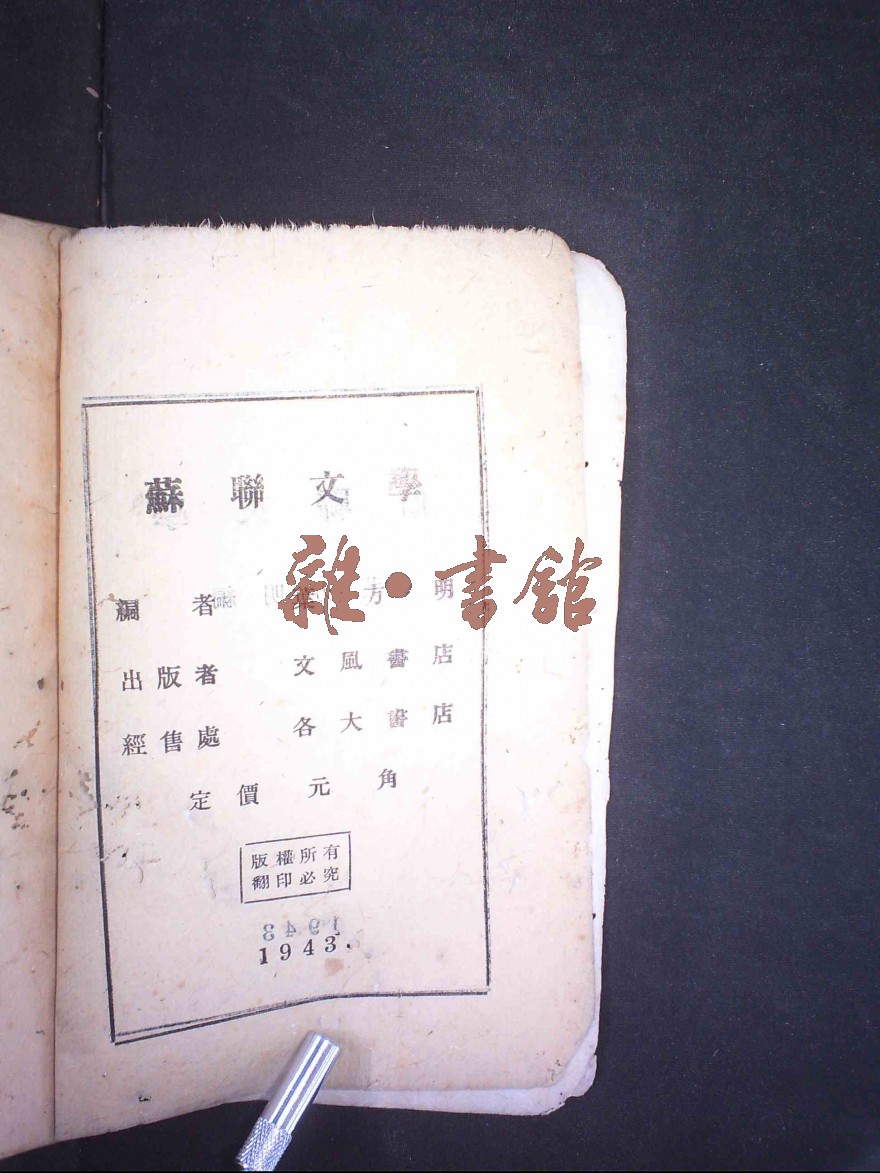 蘇聯文學
編者 葉方明
出版者 文風書店
經售處 各大書店
定價 元 角
版權所有
翻印必究
1943.
雜·書館